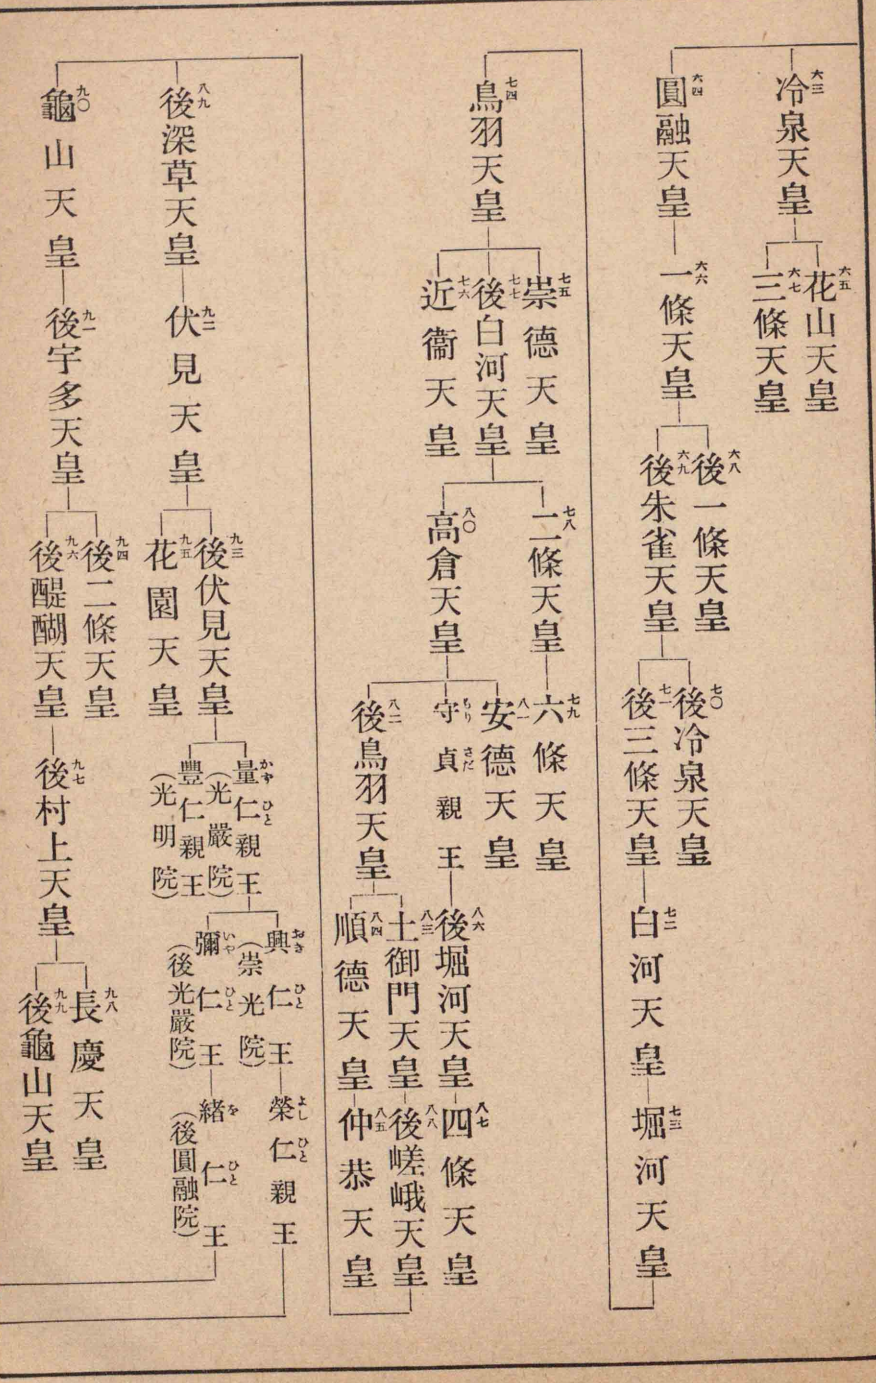 六三 冷泉天皇
六五 花山天皇
六七 三條天皇
六四 圓融天皇
六六 一條天皇
六八 後一條天皇
六九 後朱雀天皇
七〇 後冷泉天皇
七一 後三條天皇
七二 白河天皇
七三 堀河天皇
七四 鳥羽天皇
七五 崇德天皇
七七 後白河天皇
七六 近衞天皇
七八 二條天皇
七九 六條天皇
八〇 高倉天皇
八一 安德天皇
守貞親王 もりさだ
八六 後堀河天皇
八七 四條天皇
八二 後鳥羽天皇
八三 土御門天皇
八八 後嵯峨天皇
八四 順德天皇
八五 仲恭天皇
八九 後深草天皇
九二 伏見天皇
九三 後伏見天皇
量仁親王 かずひと
(光嚴院)
興仁王 おきひと
(崇光院)
榮仁親王 よしひと
彌仁王 いやひと
(後光嚴院)
緒仁王 をひと
(後圓融院)
豐仁親王
(光明院)
九五 花園天皇
九〇 龜山天皇
九一 後宇多天皇
九四 後二條天皇
九六 後醍醐天皇
九七 後村上天皇
九八 長慶天皇
九九 後龜山天皇